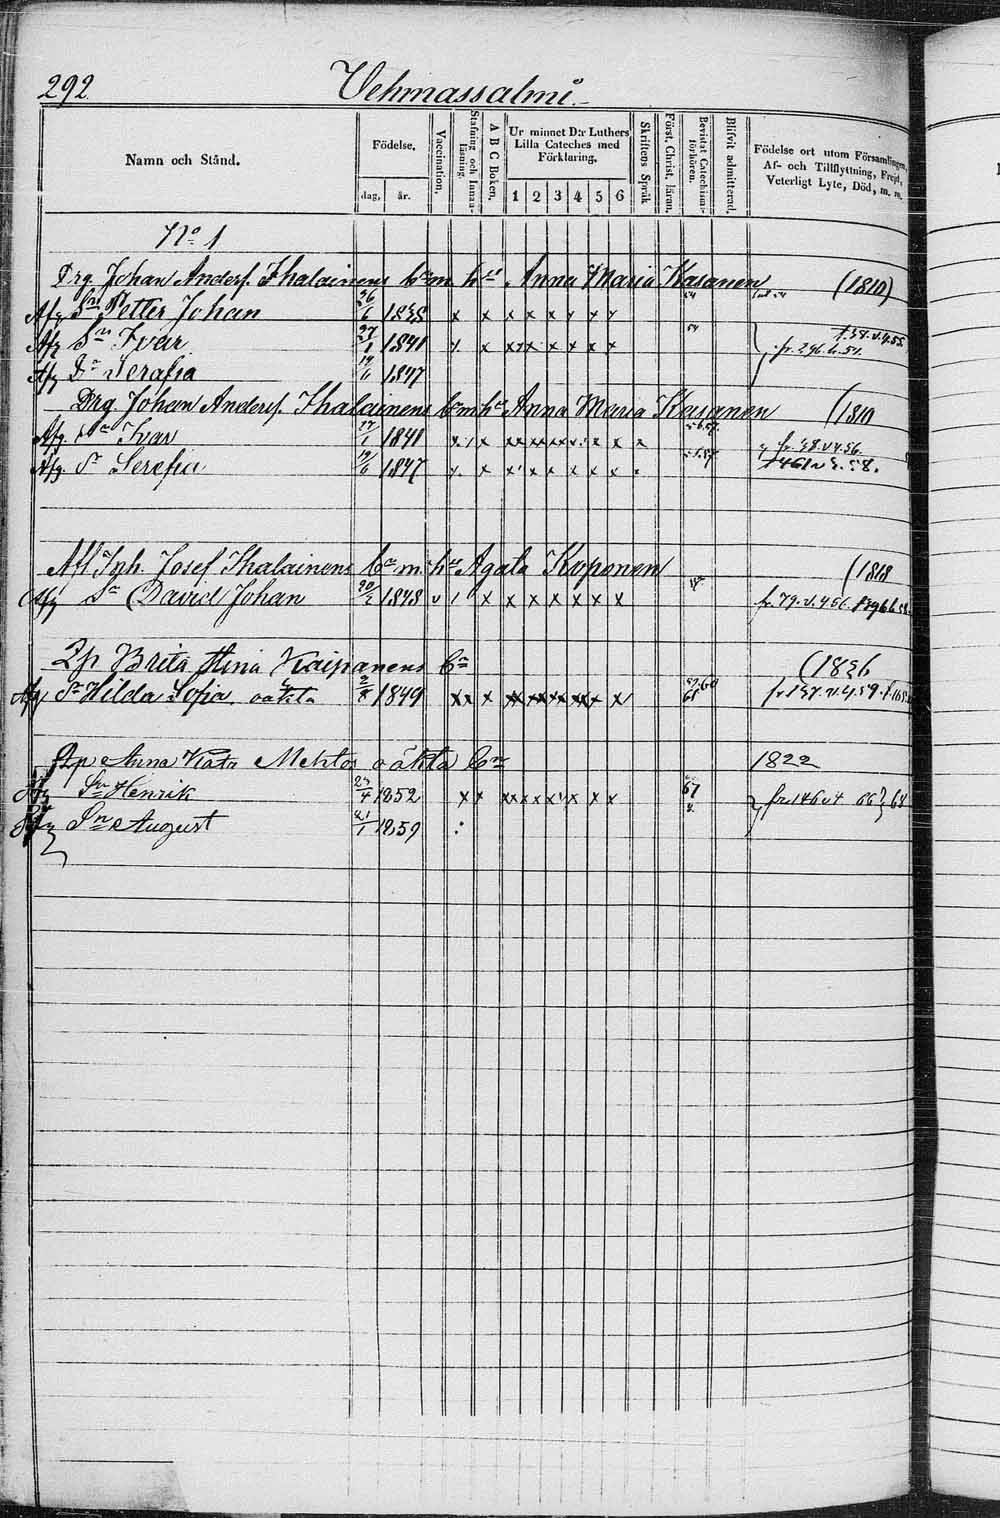 292.
Vehmassalmi
Namn och Stånd.
Födelse,
dag.
år.
Vaccination,
Stafning och Innanläsning.
A B C Boken,
Ur minnet D:r Luthers
Lilla Cateches med
Förklaring.
1 2 3 4 5 6
Skriftens Språk
Först. Christ. läran,
Bevistat Catechismi-förhören.
Blifvit admitterad.
Födelse ort utom Församlingen,
Af- och Tillflyttning, Frejd,
Veterligt Lyte, Död, m. m.
No 1
Drg. Johan Anders. Ihalainens Brn m. hu Anna Maria Kasanen (1810)
Afg Sn Petter Johan 26/6 1838 x x x x x x x x
Afg Sn Ivar 27/1 1841 x x x x x x x x x
fr. 296. v. 51.
Afg Dr Serafia 14/6 1847
Drg. Johan Anders. Ihalainens Brn m hu Anna Maria Kasanen (1810
Afg. Sn Ivar 27/1 1841
fr. 38. v 4. 56.
Afg. Dr Serefia 14/6 1847
Afl Inh. Josef Ihalainens Brn m. hu Agata Koponen (1818
Afg Sn David Johan 20/2 1848 v / x x x x x x x
fr. 79. v. 456.
Pp Brita Stina Kaipanens Bn (1836
Afg Dr Hilda Sofia oäkta 1849
Pp Anna Kata Mehtos oäkta Brn 1822
Afg Sn Henrik 23/4 1852 67
fr. 146 v 4 66
Afg Sn August 21/1 1859